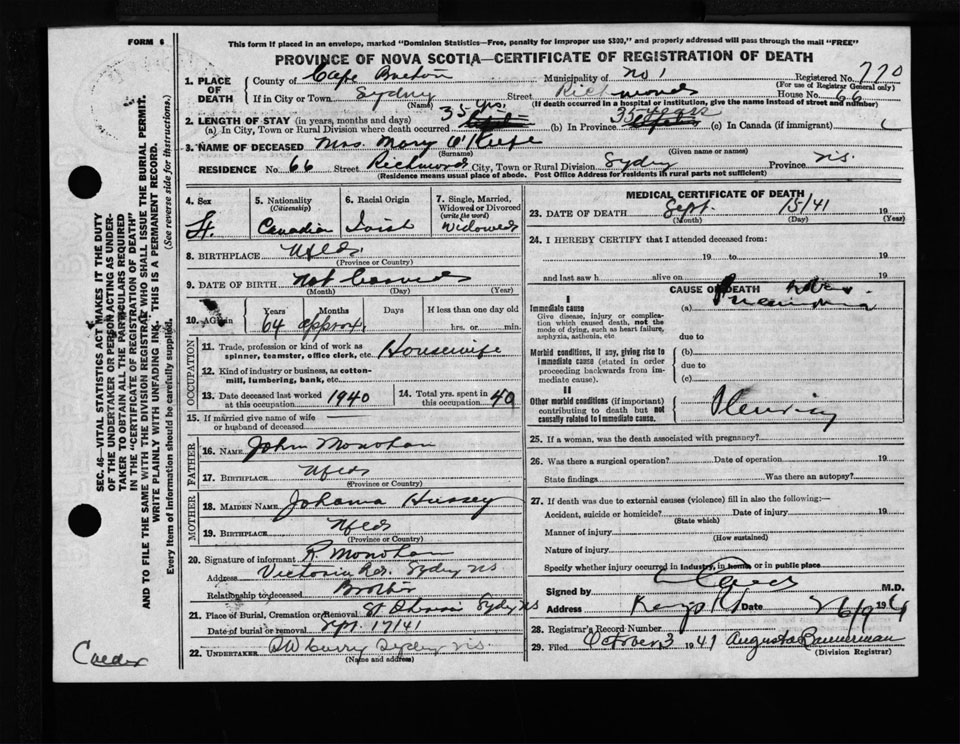 FORM 6
This form if placed in an envelope, marked "Dominion Statistics—Free, penalty for improper use $300," and properly addressed will pass through the mail "FREE"
PROVINCE OF NOVA SCOTIA—CERTIFICATE OF REGISTRATION OF DEATH
1. PLACE OF DEATH County of Cape Breton Municipality of No 1 Registered No. 770
(For use of Registrar General only)
If in City or Town Sydney Street Richmond House No. 66
(Name) (If death occurred in a hospital or institution, give the name instead of street and number)
2. LENGTH OF STAY (in years, months and days)
(a) In City, Town or Rural Division where death occurred 35 yrs. (b) In Province 35 years (c) In Canada (if immigrant)
3. NAME OF DECEASED Mrs. Mary O'Keefe
(Surname) (Given name or names)
RESIDENCE No. 66 Street Richmond City, Town or Rural Division Sydney Province N.S.
(Residence means usual place of abode. Post Office Address for residents in rural parts not sufficient)
4. Sex F.
5. Nationality (Citizenship) Canadian
6. Racial Origin Irish
7. Single, Married, Widowed or Divorced (write the word) Widowed
8. BIRTHPLACE Nfld
(Province or Country)
9. DATE OF BIRTH Not
(Month) (Day) (Year)
10. AGE in Years Months Days If less than one day old
64 approx. hrs. or min.
OCCUPATION
11. Trade, profession or kind of work as spinner, teamster, office clerk, etc. Housewife
12. Kind of industry or business, as cotton-mill, lumbering, bank, etc.
13. Date deceased last worked at this occupation 1940
14. Total yrs. spent in this occupation 40
15. If married give name of wife or husband of deceased
FATHER
16. NAME John Monohan
17. BIRTHPLACE Nfld
(Province or Country)
MOTHER
18. MAIDEN NAME Johanna Hussey
19. BIRTHPLACE Nfld
(Province or Country)
20. Signature of informant R. Monohan
Address Victoria Rd. Sydney NS
Relationship to deceased Brother
21. Place of Burial, Cremation or Removal Sydney NS
Date of burial or removal Sept. 17/41
22. UNDERTAKER Curry Sydney N.S.
(Name and address)
MEDICAL CERTIFICATE OF DEATH
23. DATE OF DEATH Sept. 15/41 19
(Month) (Day) (Year)
24. I HEREBY CERTIFY that I attended deceased from:
19 to 19
and last saw h alive on 19
CAUSE OF DEATH
I
Immediate cause (a) Pneumonia
Give disease, injury or complication which caused death, not the mode of dying, such as heart failure, asphyxia, asthenia, etc.
due to
Morbid conditions, if any, giving rise to immediate cause (stated in order proceeding backwards from immediate cause).
(b)
due to
(c)
II
Other morbid conditions (if important) contributing to death but not causally related to immediate cause.
Pleurisy
25. If a woman, was the death associated with pregnancy?
26. Was there a surgical operation? Date of operation 19
State findings Was there an autopsy?
27. If death was due to external causes (violence) fill in also the following:—
Accident, suicide or homicide? Date of injury 19
(State which)
Manner of injury
(How sustained)
Nature of injury
Specify whether injury occurred in industry, in home, or in public place
Signed by M.D.
Address Date 26/9 1941
28. Registrar's Record Number
29. Filed October 3 1941 Augusta Bannerman
(Division Registrar)
SEC. 46—VITAL STATISTICS ACT MAKES IT THE DUTY
OF THE UNDERTAKER OR PERSON ACTING AS UNDER-
TAKER TO OBTAIN ALL THE PARTICULARS REQUIRED
IN THE "CERTIFICATE OF REGISTRATION OF DEATH"
AND TO FILE THE SAME WITH THE DIVISION REGISTRAR WHO SHALL ISSUE THE BURIAL PERMIT.
WRITE PLAINLY WITH UNFADING INK. THIS IS A PERMANENT RECORD.
Every item of information should be carefully supplied. (See reverse side for instructions.)